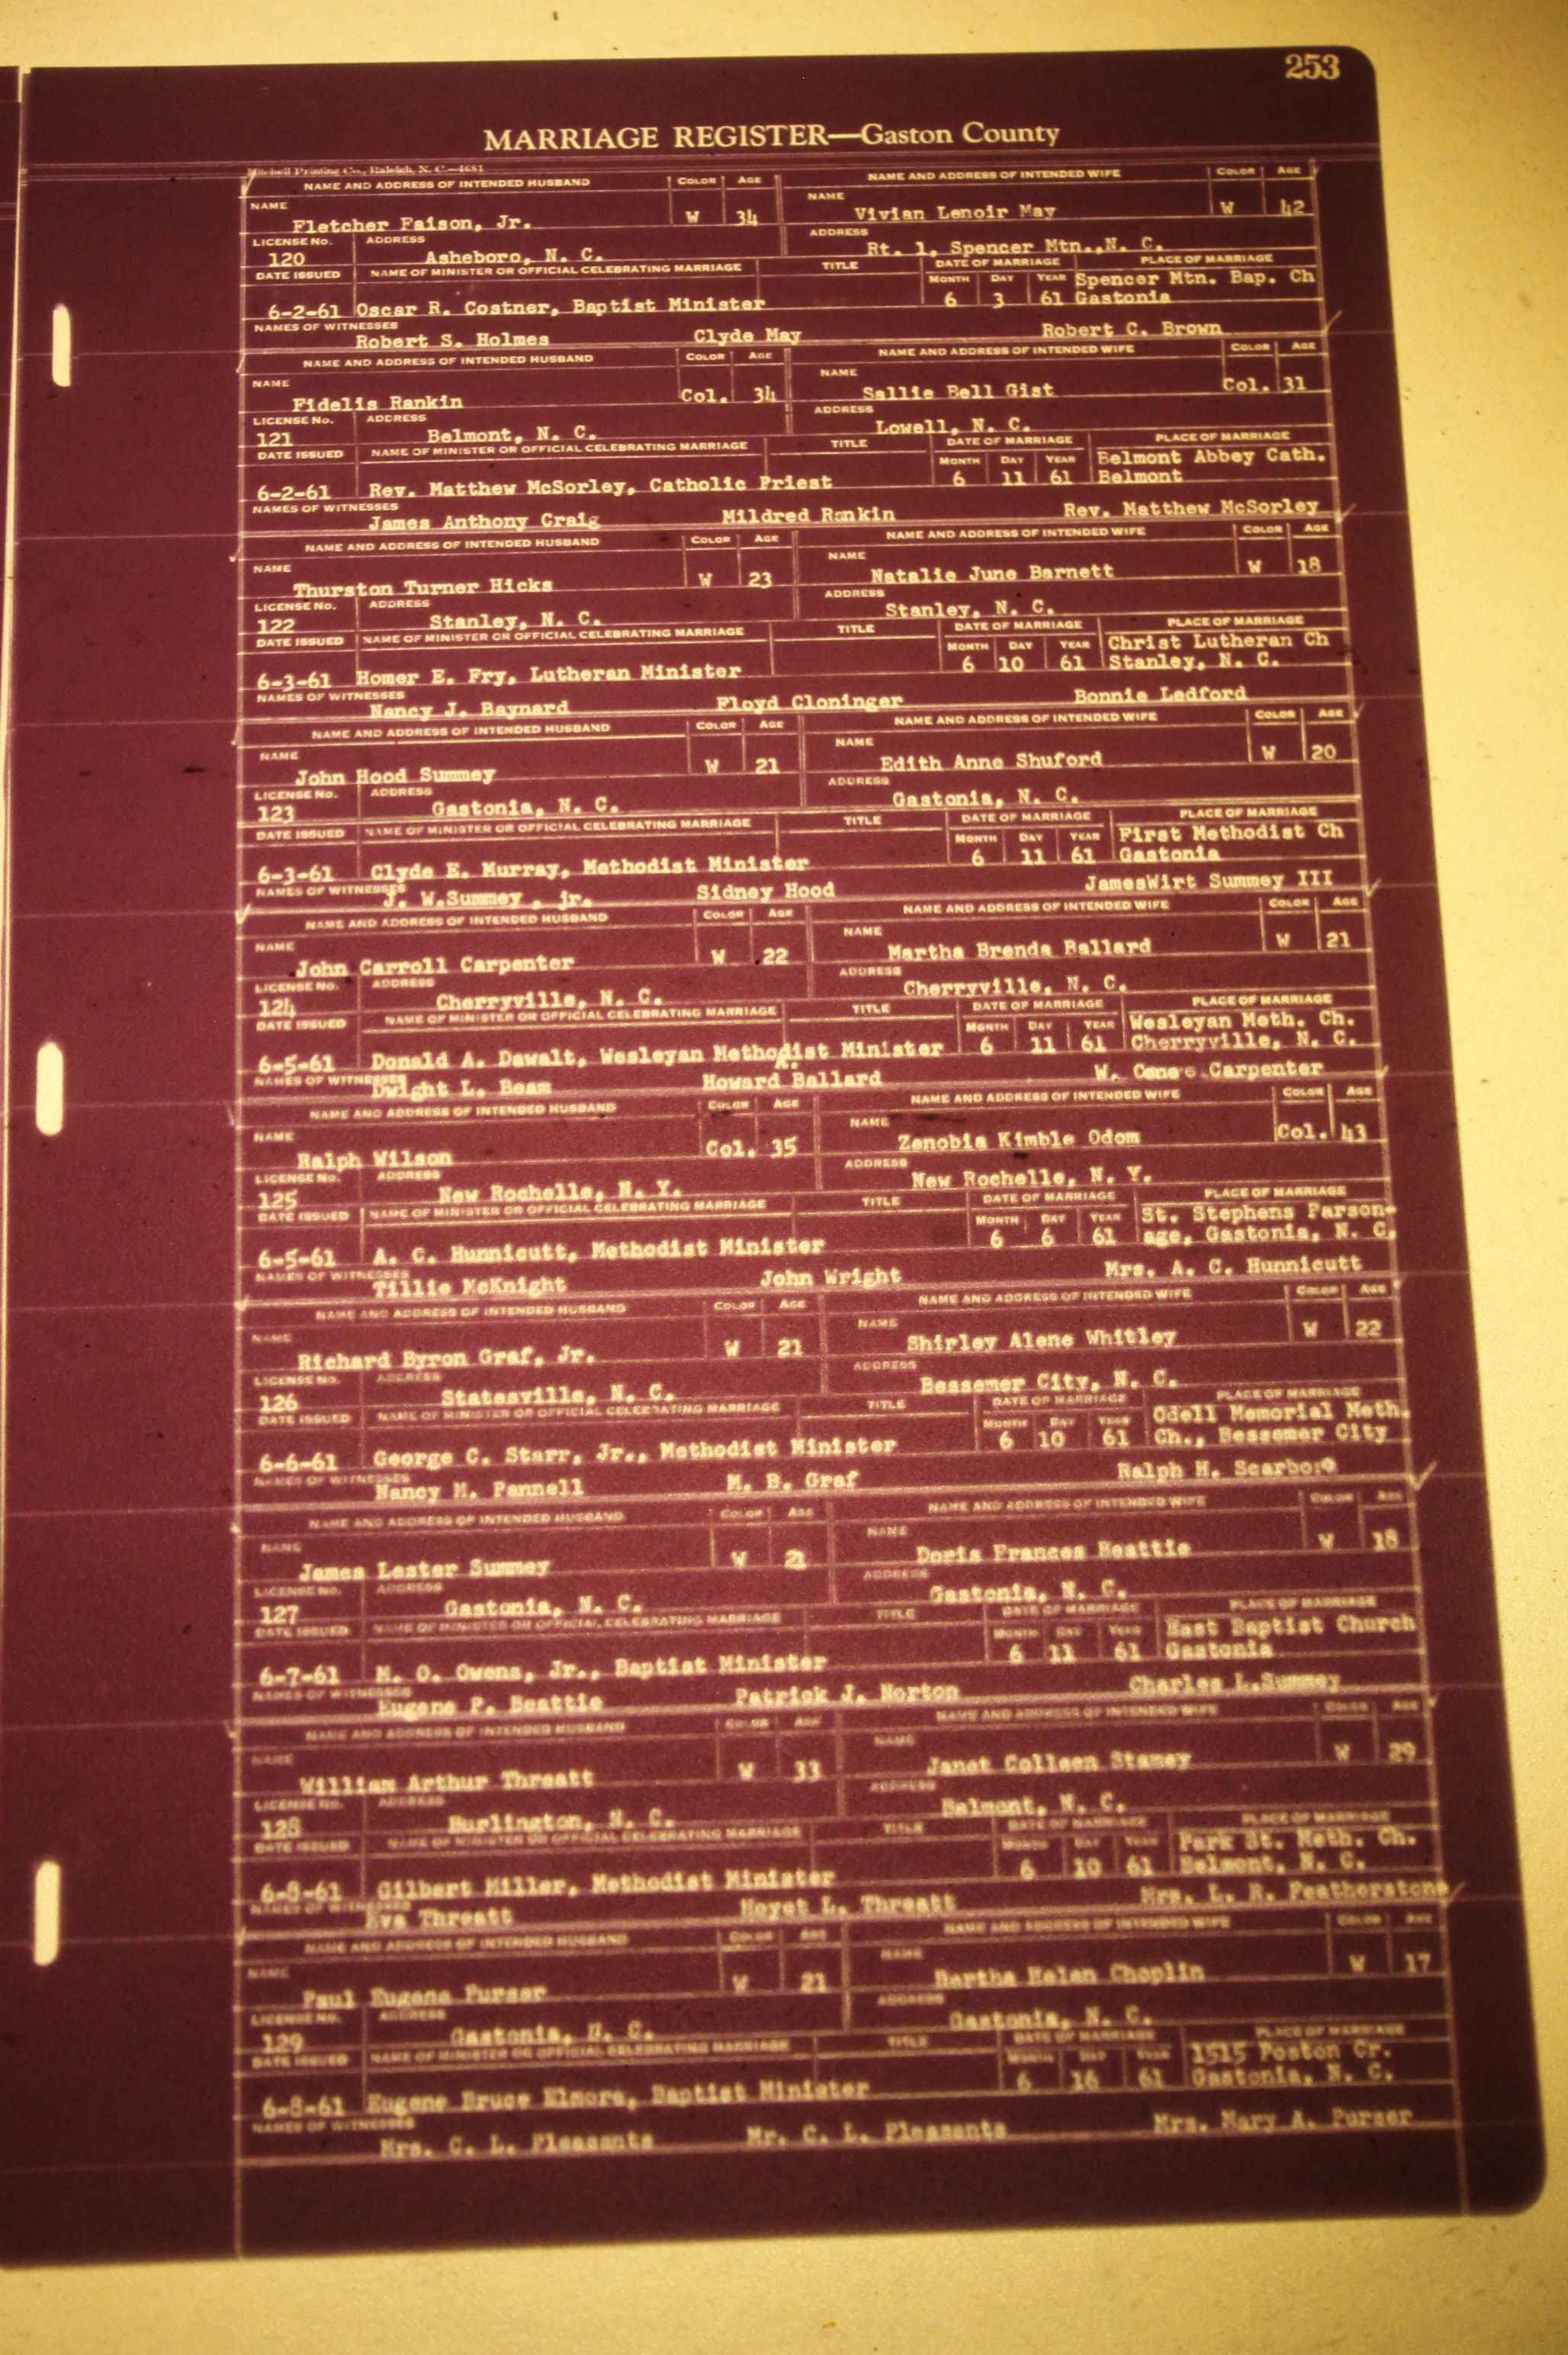 253
MARRIAGE REGISTER—Gaston County
Mitchell Printing Co., Raleigh, N. C.—4681
NAME AND ADDRESS OF INTENDED HUSBAND COLOR AGE NAME AND ADDRESS OF INTENDED WIFE COLOR AGE
NAME Fletcher Faison, Jr. W 34 NAME Vivian Lenoir May W 42
LICENSE No. 120 ADDRESS Asheboro, N. C. ADDRESS Rt. 1, Spencer Mtn.,N. C.
DATE ISSUED NAME OF MINISTER OR OFFICIAL CELEBRATING MARRIAGE TITLE DATE OF MARRIAGE PLACE OF MARRIAGE
MONTH DAY YEAR Spencer Mtn. Bap. Ch
6-2-61 Oscar R. Costner, Baptist Minister 6 3 61 Gastonia
NAMES OF WITNESSES Robert S. Holmes Clyde May Robert C. Brown
NAME AND ADDRESS OF INTENDED HUSBAND COLOR AGE NAME AND ADDRESS OF INTENDED WIFE COLOR AGE
NAME Fidelis Rankin Col. 34 NAME Sallie Bell Gist Col. 31
LICENSE No. 121 ADDRESS Belmont, N. C. ADDRESS Lowell, N. C.
DATE ISSUED NAME OF MINISTER OR OFFICIAL CELEBRATING MARRIAGE TITLE DATE OF MARRIAGE PLACE OF MARRIAGE
MONTH DAY YEAR Belmont Abbey Cath.
6-2-61 Rev. Matthew McSorley, Catholic Priest 6 11 61 Belmont
NAMES OF WITNESSES James Anthony Craig Mildred Rankin Rev. Matthew McSorley
NAME AND ADDRESS OF INTENDED HUSBAND COLOR AGE NAME AND ADDRESS OF INTENDED WIFE COLOR AGE
NAME Thurston Turner Hicks W 23 NAME Natalie June Barnett W 18
LICENSE No. 122 ADDRESS Stanley, N. C. ADDRESS Stanley, N. C.
DATE ISSUED NAME OF MINISTER OR OFFICIAL CELEBRATING MARRIAGE TITLE DATE OF MARRIAGE PLACE OF MARRIAGE
MONTH DAY YEAR Christ Lutheran Ch
6-3-61 Homer E. Fry, Lutheran Minister 6 10 61 Stanley, N. C.
NAMES OF WITNESSES Nancy J. Baynard Floyd Cloninger Bonnie Ledford
NAME AND ADDRESS OF INTENDED HUSBAND COLOR AGE NAME AND ADDRESS OF INTENDED WIFE COLOR AGE
NAME John Hood Summey W 21 NAME Edith Anne Shuford W 20
LICENSE No. 123 ADDRESS Gastonia, N. C. ADDRESS Gastonia, N. C.
DATE ISSUED NAME OF MINISTER OR OFFICIAL CELEBRATING MARRIAGE TITLE DATE OF MARRIAGE PLACE OF MARRIAGE
MONTH DAY YEAR First Methodist Ch
6-3-61 Clyde E. Murray, Methodist Minister 6 11 61 Gastonia
NAMES OF WITNESSES J. W.Summey , jr. Sidney Hood JamesWirt Summey III
NAME AND ADDRESS OF INTENDED HUSBAND COLOR AGE NAME AND ADDRESS OF INTENDED WIFE COLOR AGE
NAME John Carroll Carpenter W 22 NAME Martha Brenda Ballard W 21
LICENSE No. 124 ADDRESS Cherryville, N. C. ADDRESS Cherryville, N. C.
DATE ISSUED NAME OF MINISTER OR OFFICIAL CELEBRATING MARRIAGE TITLE DATE OF MARRIAGE PLACE OF MARRIAGE
MONTH DAY YEAR Wesleyan Meth. Ch.
6-5-61 Donald A. Dawalt, Wesleyan Methodist Minister 6 11 61 Cherryville, N. C.
NAMES OF WITNESSES Dwight L. Beam Howard A. Ballard W. Carpenter
NAME AND ADDRESS OF INTENDED HUSBAND COLOR AGE NAME AND ADDRESS OF INTENDED WIFE COLOR AGE
NAME Ralph Wilson Col. 35 NAME Zenobia Kimble Odom Col. 43
LICENSE No. 125 ADDRESS New Rochelle, N. Y. ADDRESS New Rochelle, N. Y.
DATE ISSUED NAME OF MINISTER OR OFFICIAL CELEBRATING MARRIAGE TITLE DATE OF MARRIAGE PLACE OF MARRIAGE
MONTH DAY YEAR St. Stephens Parson-
6-5-61 A. C. Hunnicutt, Methodist Minister 6 6 61 age, Gastonia, N. C.
NAMES OF WITNESSES Tillie McKnight John Wright Mrs. A. C. Hunnicutt
NAME AND ADDRESS OF INTENDED HUSBAND COLOR AGE NAME AND ADDRESS OF INTENDED WIFE COLOR AGE
NAME Richard Byron Graf, Jr. W 21 NAME Shirley Alene Whitley W 22
LICENSE No. 126 ADDRESS Statesville, N. C. ADDRESS Bessemer City, N. C.
DATE ISSUED NAME OF MINISTER OR OFFICIAL CELEBRATING MARRIAGE TITLE DATE OF MARRIAGE PLACE OF MARRIAGE
MONTH DAY YEAR Odell Memorial Meth.
6-6-61 George C. Starr, Jr., Methodist Minister 6 10 61 Ch., Bessemer City
NAMES OF WITNESSES Nancy M. Pannell M. B. Graf Ralph H. Scarboro
NAME AND ADDRESS OF INTENDED HUSBAND COLOR AGE NAME AND ADDRESS OF INTENDED WIFE COLOR AGE
NAME James Lester Summey W 21 NAME Doris Frances Beattie W 18
LICENSE No. 127 ADDRESS Gastonia, N. C. ADDRESS Gastonia, N. C.
DATE ISSUED NAME OF MINISTER OR OFFICIAL CELEBRATING MARRIAGE TITLE DATE OF MARRIAGE PLACE OF MARRIAGE
MONTH DAY YEAR East Baptist Church
6-7-61 M. O. Owens, Jr., Baptist Minister 6 11 61 Gastonia
NAMES OF WITNESSES Eugene P. Beattie Patrick J. Norton Charles L.Summey
NAME AND ADDRESS OF INTENDED HUSBAND COLOR AGE NAME AND ADDRESS OF INTENDED WIFE COLOR AGE
NAME William Arthur Threatt W 33 NAME Janet Colleen Stamey W 29
LICENSE No. 128 ADDRESS Burlington, N. C. ADDRESS Belmont, N. C.
DATE ISSUED NAME OF MINISTER OR OFFICIAL CELEBRATING MARRIAGE TITLE DATE OF MARRIAGE PLACE OF MARRIAGE
MONTH DAY YEAR Park St. Meth. Ch.
6-8-61 Gilbert Miller, Methodist Minister 6 10 61 Belmont, N. C.
NAMES OF WITNESSES Eva Threatt Hoyet L. Threatt Mrs. L. R. Featherstone
NAME AND ADDRESS OF INTENDED HUSBAND COLOR AGE NAME AND ADDRESS OF INTENDED WIFE COLOR AGE
NAME Paul Eugene Purser W 21 NAME Bertha Helen Choplin W 17
LICENSE No. 129 ADDRESS Gastonia, N. C. ADDRESS Gastonia, N. C.
DATE ISSUED NAME OF MINISTER OR OFFICIAL CELEBRATING MARRIAGE TITLE DATE OF MARRIAGE PLACE OF MARRIAGE
MONTH DAY YEAR 1515 Poston Cr.
6-8-61 Eugene Bruce Elmore, Baptist Minister 6 16 61 Gastonia, N. C.
NAMES OF WITNESSES Mrs. C. L. Pleasants Mr. C. L. Pleasants Mrs. Mary A. Purser